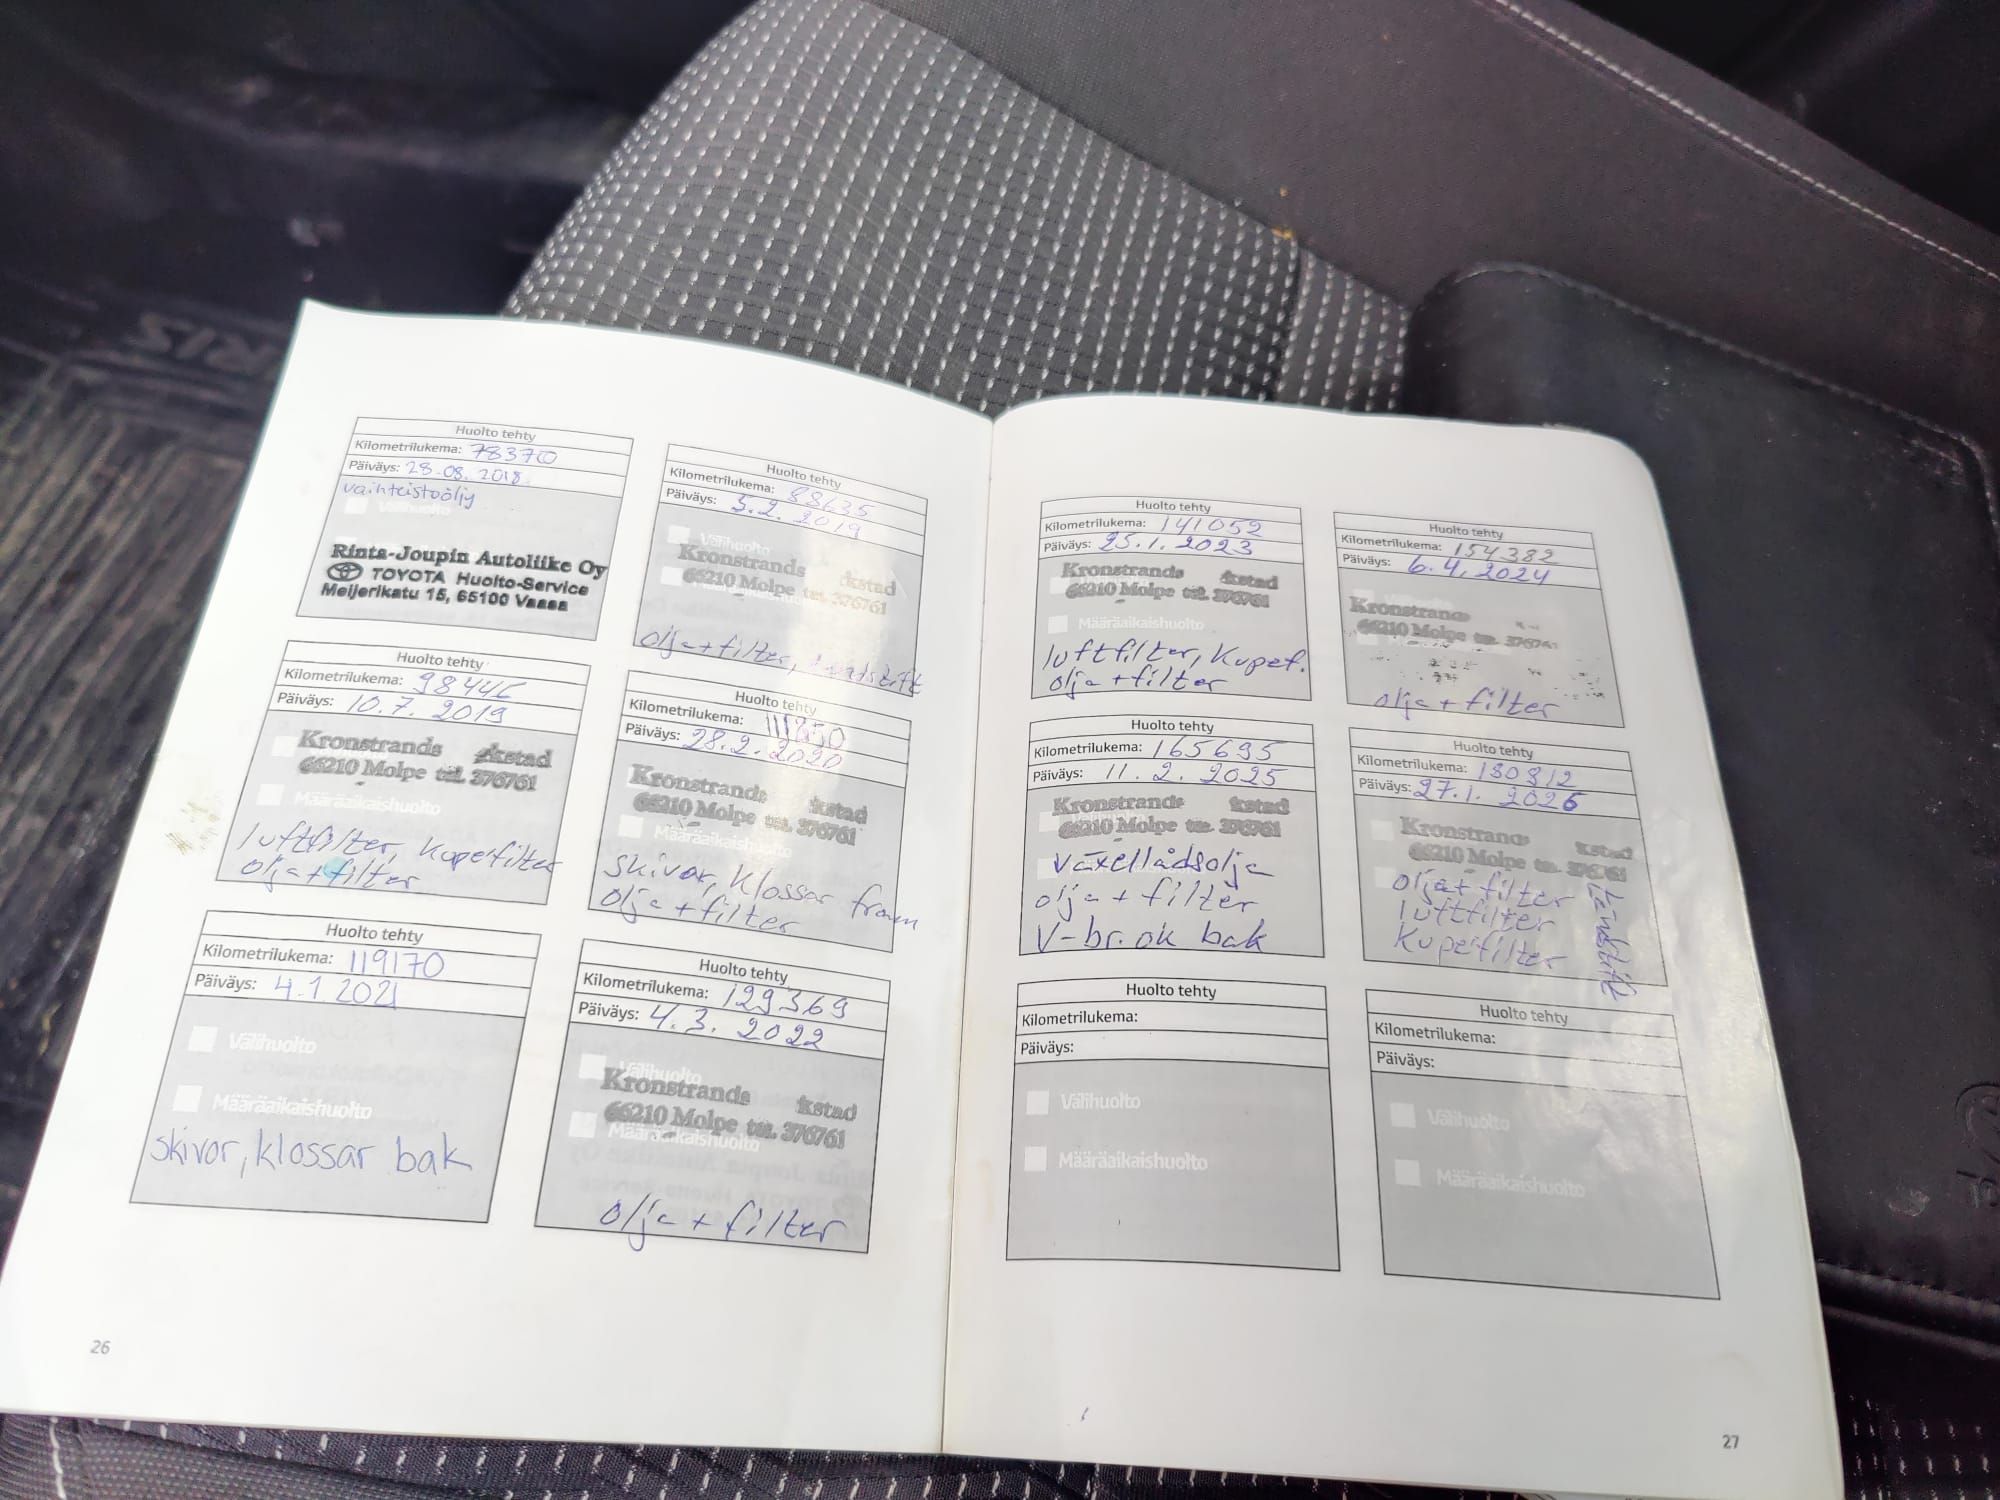 Huolto tehty
Kilometrilukema: 78370
Päiväys: 28.08.2018
vaihteistoöljy
Välihuolto
Rinta-Joupin Autoliike Oy
TOYOTA Huolto-Service
Meijerikatu 15, 65100 Vaasa
Huolto tehty
Kilometrilukema: 88635
Päiväys: 5.2.2019
Välihuolto
Kronstrands kstad
66210 Molpe tel. 376761
olja+filter,
Huolto tehty
Kilometrilukema: 98446
Päiväys: 10.7.2019
Kronstrands kstad
66210 Molpe tel. 376761
Määräaikaishuolto
luftfilter, Kupefilter
olja+filter
Huolto tehty
Kilometrilukema: 111850
Päiväys: 28.2.2020
Kronstrands kstad
66210 Molpe tel. 376761
Määräaikaishuolto
skivor, Klossar fram
olja+filter
Huolto tehty
Kilometrilukema: 119170
Päiväys: 4.1.2021
Välihuolto
Määräaikaishuolto
skivor, klossar bak
Huolto tehty
Kilometrilukema: 129369
Päiväys: 4.3.2022
Välihuolto
Kronstrands kstad
66210 Molpe tel. 376761
Määräaikaishuolto
olja + filter
26
Huolto tehty
Kilometrilukema: 141052
Päiväys: 25.1.2023
Kronstrands kstad
66210 Molpe tel. 376761
Määräaikaishuolto
luftfilter, Kupef.
olja+filter
Huolto tehty
Kilometrilukema: 154382
Päiväys: 6.4.2024
Kronstrands
66210 Molpe tel. 376761
olja+filter
Huolto tehty
Kilometrilukema: 165695
Päiväys: 11.2.2025
Kronstrands kstad
66210 Molpe tel. 376761
växellådsolja
olja + filter
V-br. ok bak
Huolto tehty
Kilometrilukema: 180812
Päiväys: 27.1.2026
Kronstrands kstad
66210 Molpe tel. 376761
olja+ filter
luftfilter
Kupefilter
Tändstift
Huolto tehty
Kilometrilukema:
Päiväys:
Välihuolto
Määräaikaishuolto
Huolto tehty
Kilometrilukema:
Päiväys:
Välihuolto
Määräaikaishuolto
27